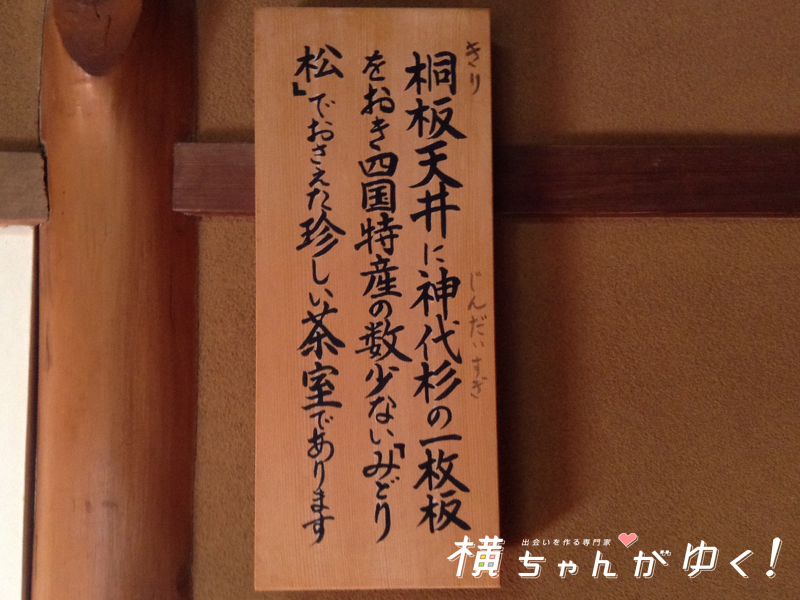 きり
桐板天井に神代杉の一枚板
じんだいすぎ
をおき四国特産の数少ない「みどり
松」でおさえた珍しい茶室であります
出会いを作る専門家
横ちゃんがゆく!